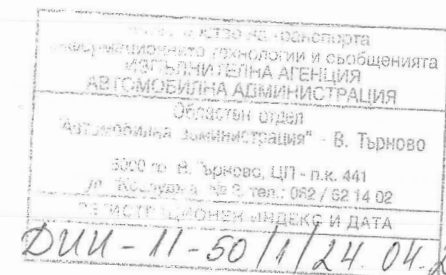 транспорта
информационните технологии и съобщенията
ИЗПЪЛНИТЕЛНА АГЕНЦИЯ
АВТОМОБИЛНА АДМИНИСТРАЦИЯ
Областен отдел
"Автомобилна администрация" - В. Търново
5000 гр. В. Търново, ЦП - п.к. 441
№ 3, тел.: 062 / 62 14 02
РЕГИСТРАЦИОНЕН ИНДЕКС И ДАТА
ДИИ - 11-50/1/24.04.